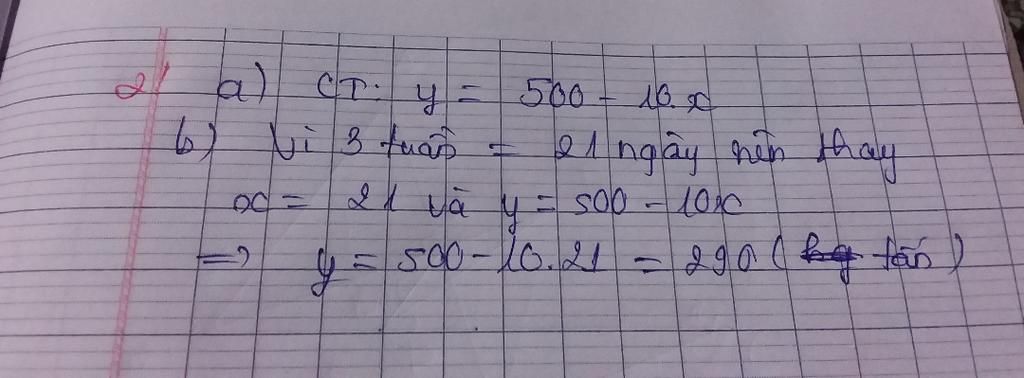 2/ a) CT: y = 500 - 10.x
b) Vì 3 tuần = 21 ngày nên thay
x = 21 và y = 500 - 10x
=> y = 500 - 10.21 = 290 (kg tấn)